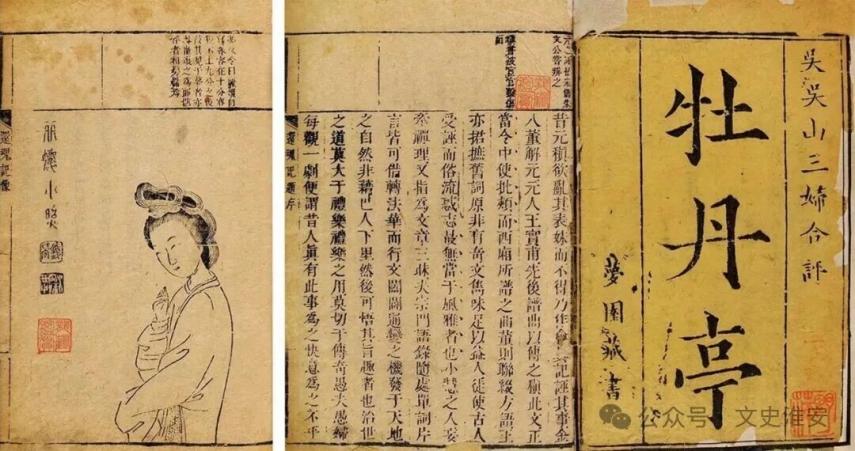 吳吳山三婦合評
牡丹亭
夢園藏書
公众号 · 文史淮安
昔元稹欲亂其表妹而不得乃作會真記誣其事金
八董解元元人王實甫先後譜曲以傳之顧此文正
當令中使批頰而西廂所譜之曲董則聯綴方語王
亦捃摭舊詞原非有奇文雋味足以益人徒使古人
受誣而俗流惑志最無當于風雅者也小慧之人妄
禪理又指為文章三昧夫宗門語錄隨處單詞片
言皆可借轉法華而行文開闔過變之機發于天地
之自然非藉世人下里然後可悟其旨趣者也治世
之道莫大于禮樂禮樂之用莫切于傳奇愚夫愚婦
每觀一劇便謂昔人真有此事為之快意為之不平
還魂記序
小照
還魂記像